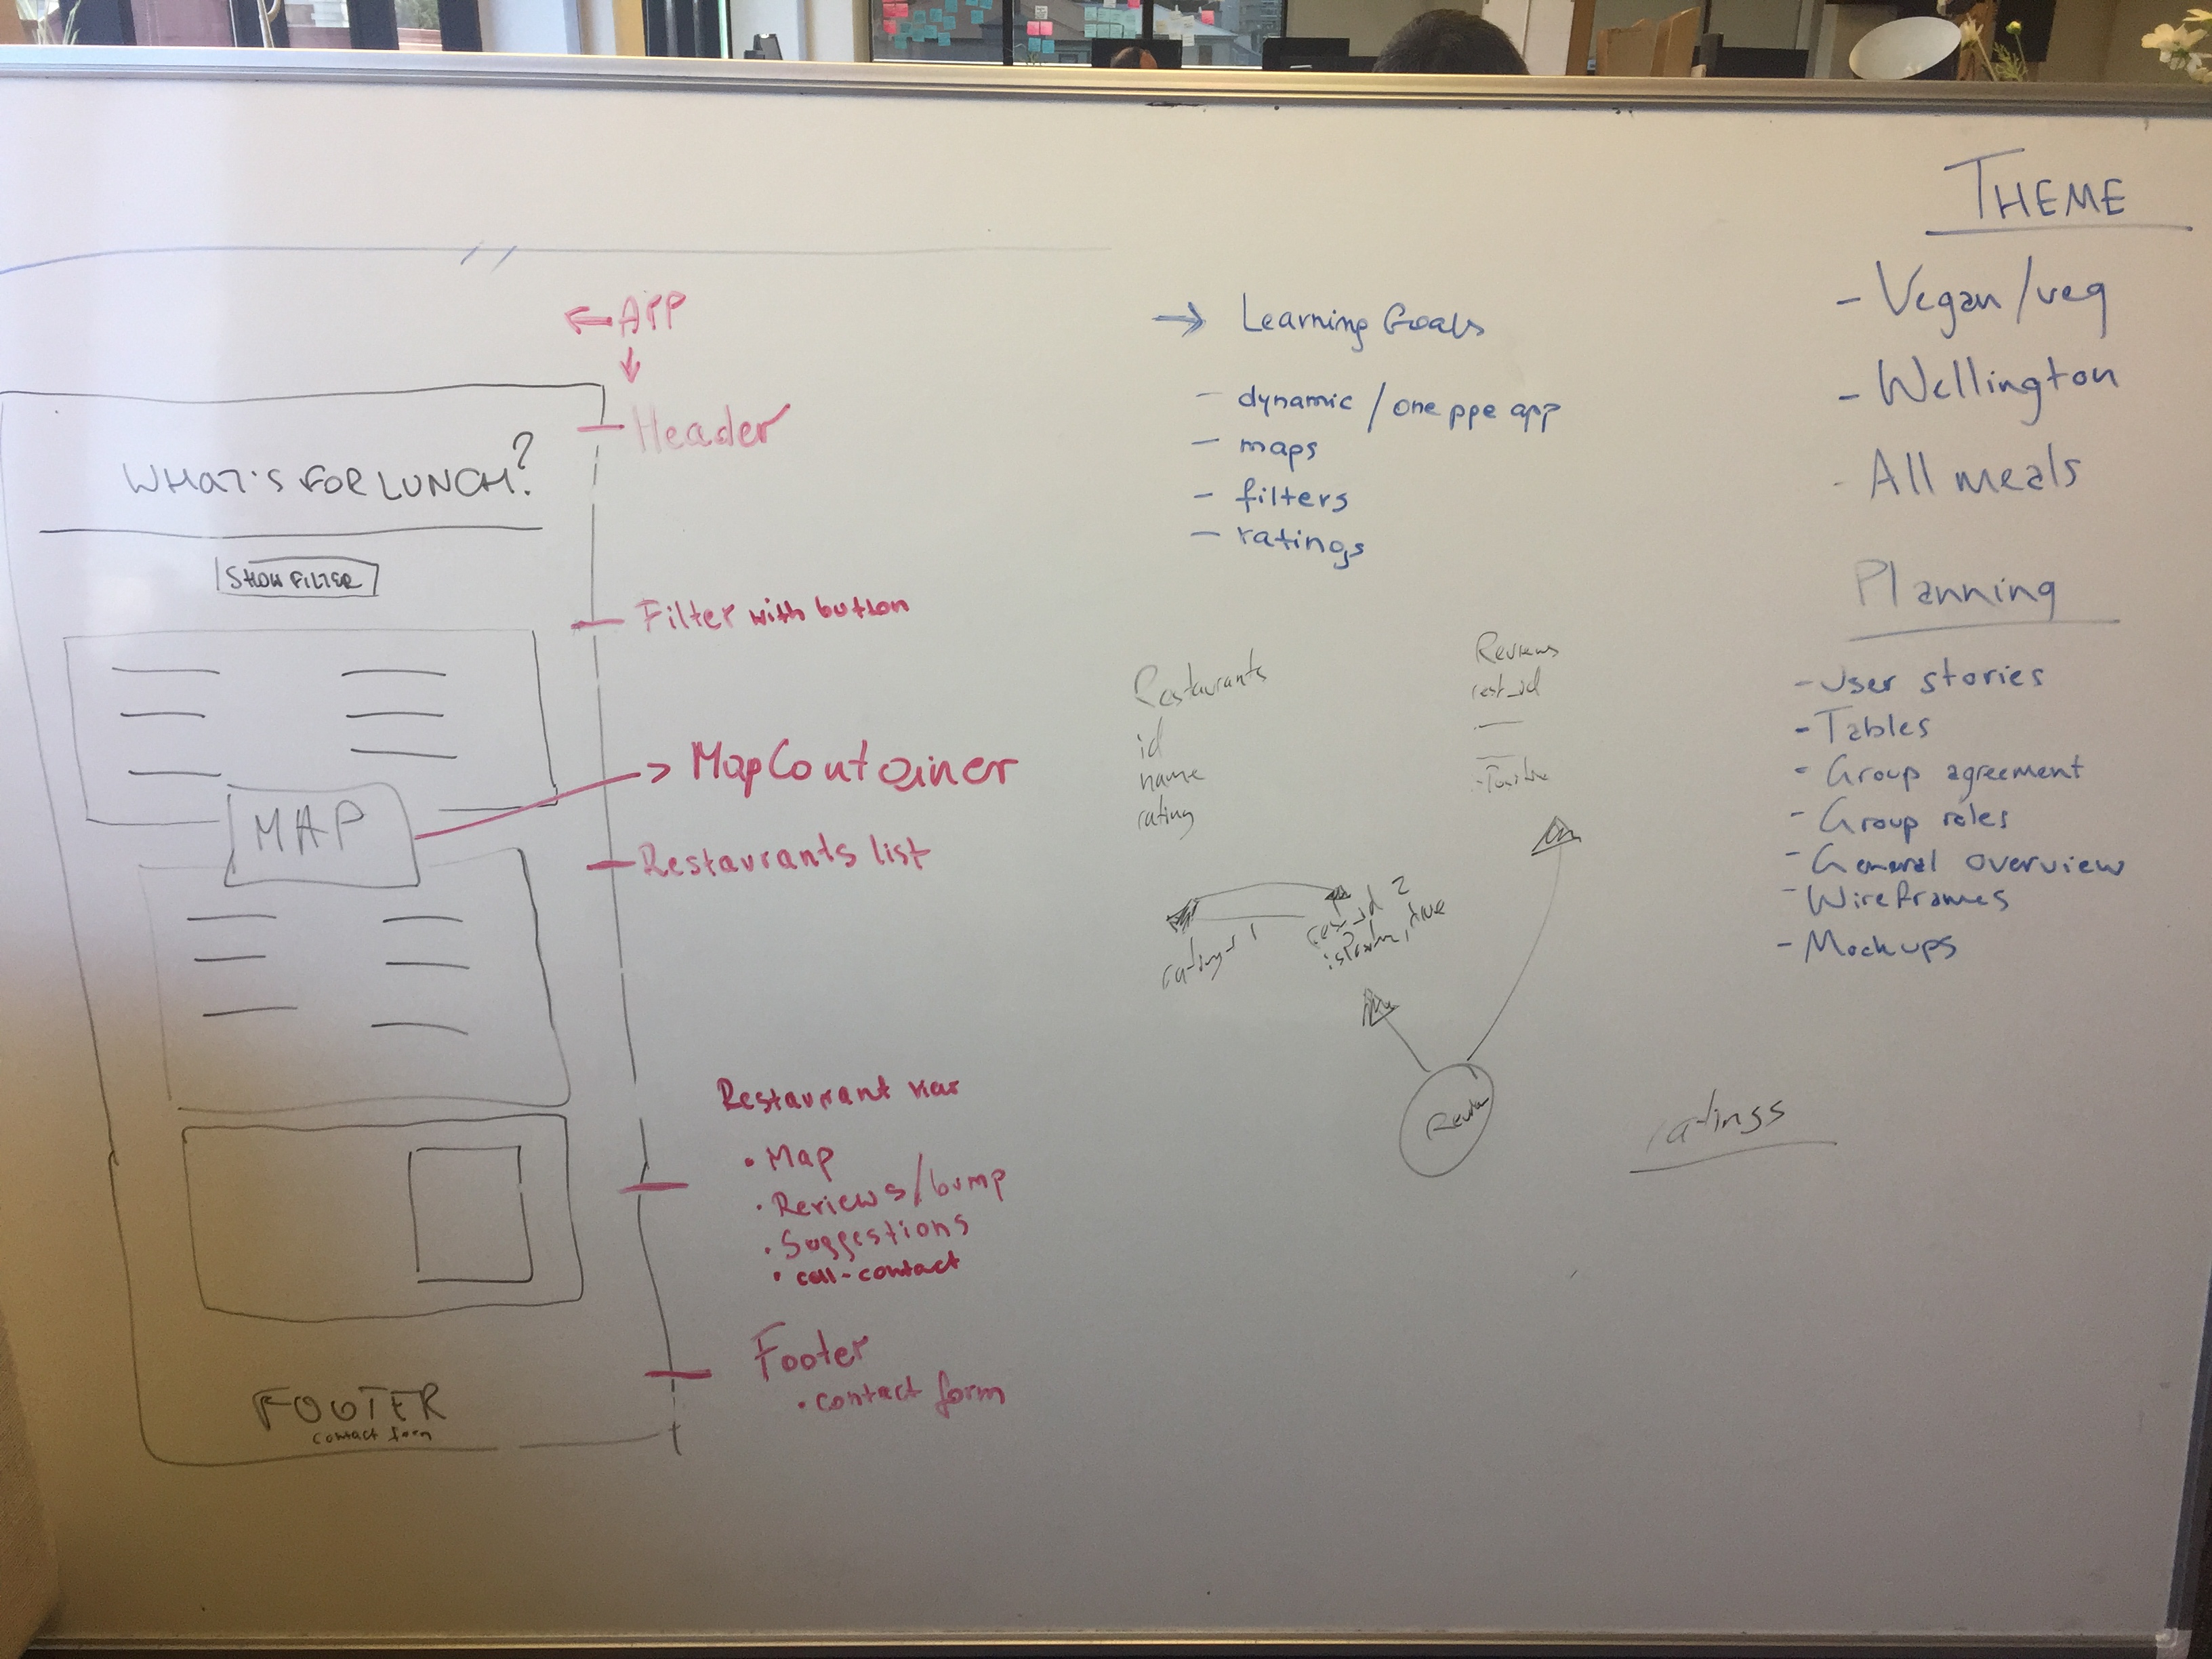 WHAT'S FOR LUNCH?
SHOW FILTER
MAP
FOOTER
contact form
← APP
↓
Header
Filter with button
→ MapContainer
Restaurants list
Restaurant view
• Map
• Reviews/bump
• Suggestions
• call-contact
Footer
• contact form
→ Learning Goals
- dynamic / one ppe app
- maps
- filters
- ratings
Restaurants
id
name
rating
Reviews
rest_id
rating 1
rest_id 2
true
ratings
THEME
- Vegan/veg
- Wellington
- All meals
Planning
- User stories
- Tables
- Group agreement
- Group roles
- General overview
- Wireframes
- Mockups